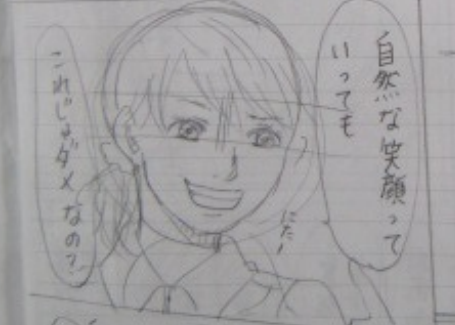 自然な笑顔って
いっても
にたー
これじゃダメなの?